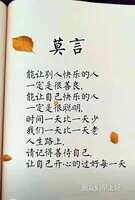 莫言
能让别人快乐的人
一定是很善良,
能让自己快乐的人
一定是很聪明,
时间一天比一天少
我们一天比一天老
人生路上,
请记得善待自己,
让自己开心的过好每一天